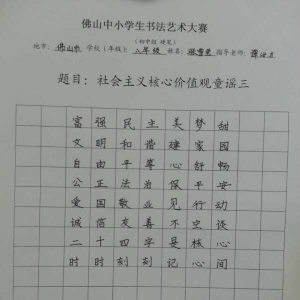 佛山中小学生书法艺术大赛
(初中组 硬笔)
地市: 佛山市 学校(年级): 八年级 姓名: 指导老师:
题目: 社会主义核心价值观童谣三
富强民主美梦甜
文明和谐建家园
自由平等心舒畅
公正法治保平安
爱国敬业见行动
诚信友善不空谈
二十四字是核心
时时刻刻记心间